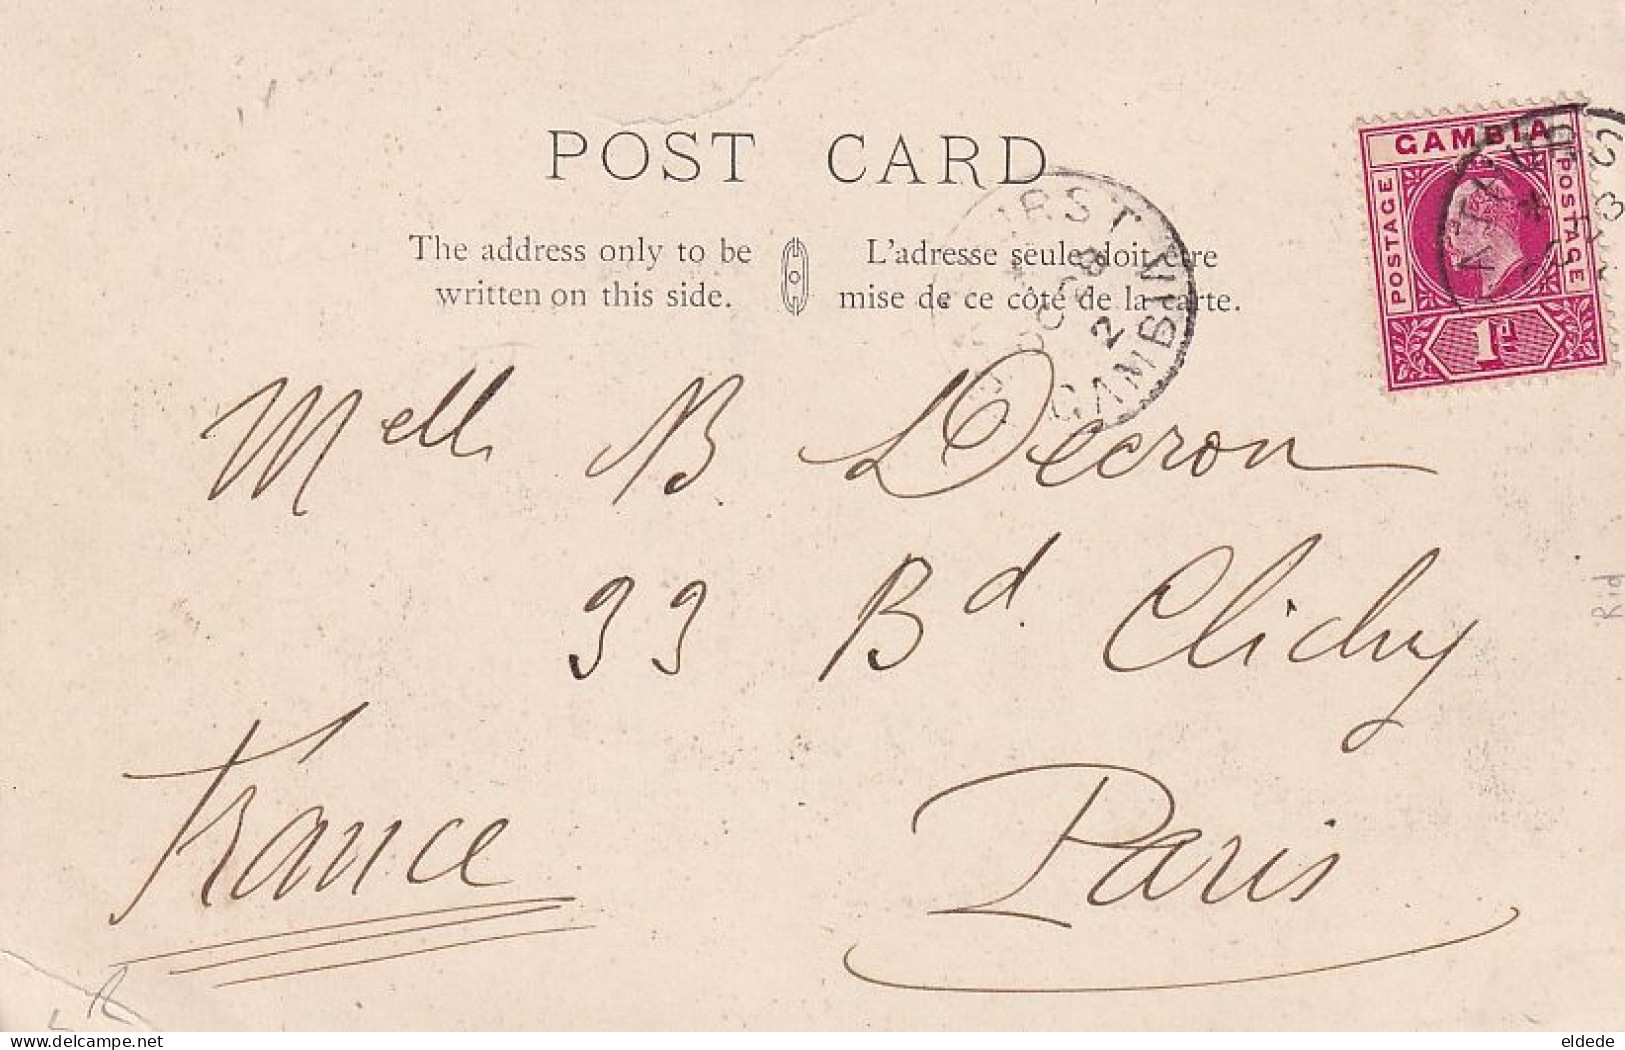 POST CARD
GAMBIA
POSTAGE
POSTAGE
1d
The address only to be
written on this side.
L'adresse seule doit être
mise de ce côté de la carte.
GAMBIA
Mell B Decron
33 Bd Clichy
Paris
France
Rid
delcampe.net
eldede